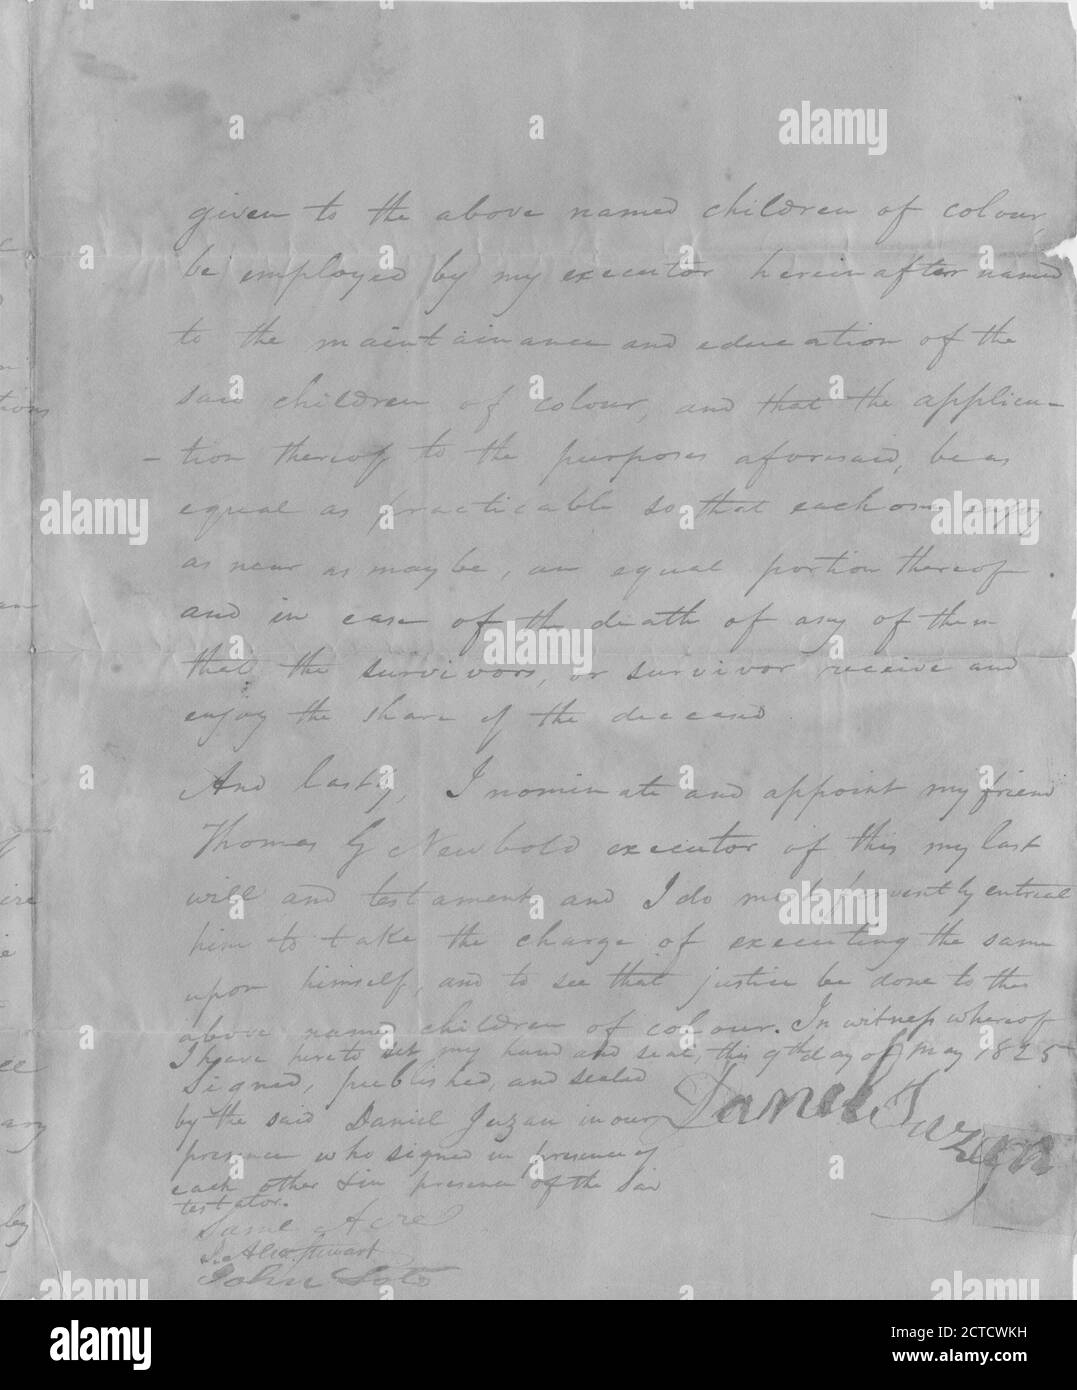 given to the above named children of colour,
be employed by my executor herein after named
to the maintainance and education of the
said children of colour, and that the applica-
-tion thereof to the purposes aforesaid, be as
equal as practicable so that each one enjoy
as near as may be, an equal portion thereof.
and in case of the death of any of them
that the survivors, or survivor receive and
enjoy the share of the deceased
And lastly, I nominate and appoint my friend
Thomas G Newbold executor of this my last
will and testament, and I do most fervently entreat
him to take the charge of executing the same
upon himself, and to see that justice be done to the
above named children of colour. In witness whereof
I have hereto set my hand and seal, this 9th day of May 1825
Signed, published, and sealed
by the said Daniel Juzan in our
presence who signed in presence of
each other & in presence of the said
testator.
Daniel Juzan
Acre
Stewart
John
alamy
alamy
alamy
alamy
alamy
alamy
a
alamy
Image ID: 2CTCWKH
www.alamy.com